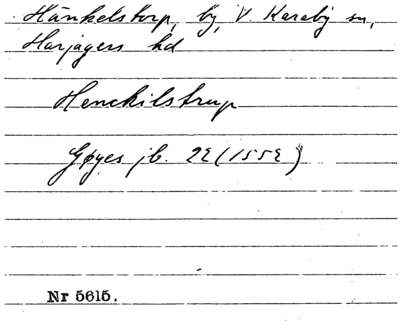 Hänkelstorp, by, V Karaby sn,
Harjagers hd
Henckilstrup
Gøyes jb. 22 (1552)
Nr 5615.